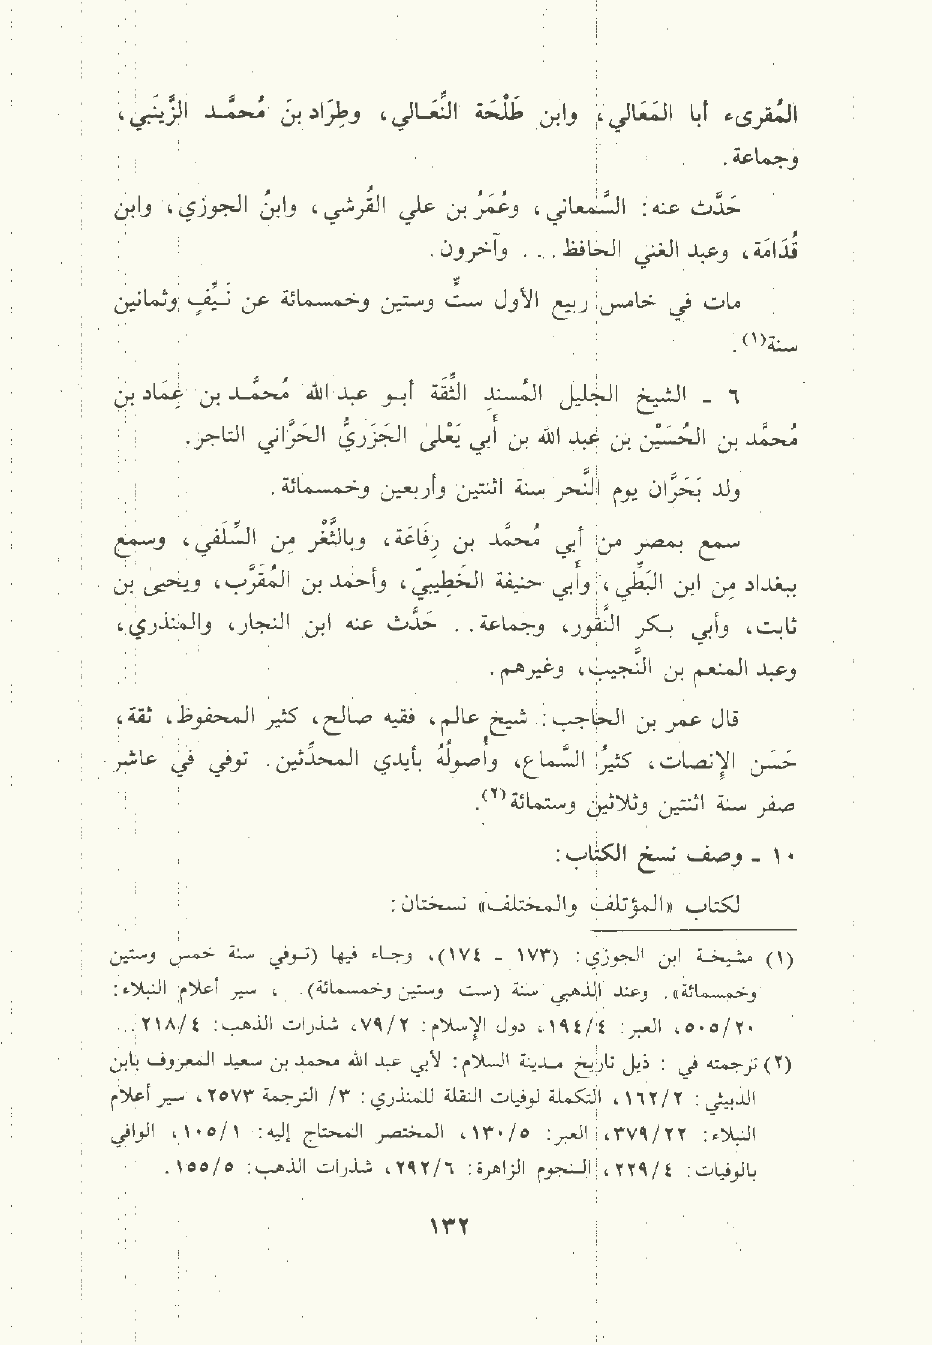 المُقرىء أبا المَعَالي، وابن طَلْحَة النِّعَالي، وطِرَاد بنَ مُحمَّد الزَّينَبي،
وجماعة.
حَدَّث عنه: السَّمعاني، وعُمَرُ بن علي القُرشي، وابنُ الجوزي، وابن
قُدَامَة، وعبد الغني الحافظ... وآخرون.
مات في خامس ربيع الأول ستٍّ وستين وخمسمائة عن نَيِّفٍ وثمانين
سنة(١).
٦ - الشيخ الجليل المُسند الثِّقَة أبو عبد الله مُحمَّد بن عِمَاد بن
محمَّد بن الحُسَيْن بن عبد الله بن أبي يَعْلى الجَزَرِيُّ الحَرَّاني التاجر.
ولد بَحَرَّان يوم النَّحر سنة اثنتين وأربعين وخمسمائة.
سمع بمصر من أبي مُحمَّد بن رِفَاعَة، وبالثَّغْر من السِّلَفي، وسمع
ببغداد من ابن البَطِّي، وأبي حنيفة الخَطِيبيّ، وأحمد بن المُقَرَّب، ويحيى بن
ثابت، وأبي بكر النَّقور، وجماعة.. حَدَّث عنه ابن النجار، والمنذري،
وعبد المنعم بن النَّجيب، وغيرهم.
قال عمر بن الحاجب: شيخ عالم، فقيه صالح، كثير المحفوظ، ثقة،
حَسَن الإنصات، كثيرُ السَّماع، وأصولُهُ بأيدي المحدِّثين. توفي في عاشر
صفر سنة اثنتين وثلاثين وستمائة(٢).
١٠ - وصف نسخ الكتاب:
لكتاب «المؤتلف والمختلف» نسختان:
(١) مشيخة ابن الجوزي: (١٧٣ - ١٧٤)، وجاء فيها (توفي سنة خمس وستين
وخمسمائة». وعند الذهبي سنة (ست وستين وخمسمائة). ، سير أعلام النبلاء:
٥٠٥/٢٠، العبر: ١٩٤/٤، دول الإسلام: ٧٩/٢، شذرات الذهب: ٢١٨/٤...
(٢) ترجمته في : ذيل تاريخ مدينة السلام: لأبي عبد الله محمد بن سعيد المعروف بابن
الدبيثي: ١٦٢/٢، التكملة لوفيات النقلة للمنذري: ٣/ الترجمة ٢٥٧٣، سير أعلام
النبلاء: ٣٧٩/٢٢، العبر: ١٣٠/٥، المختصر المحتاج إليه: ١٠٥/١، الوافي
بالوفيات: ٢٢٩/٤، النجوم الزاهرة: ٢٩٢/٦، شذرات الذهب: ١٥٥/٥.
١٣٢